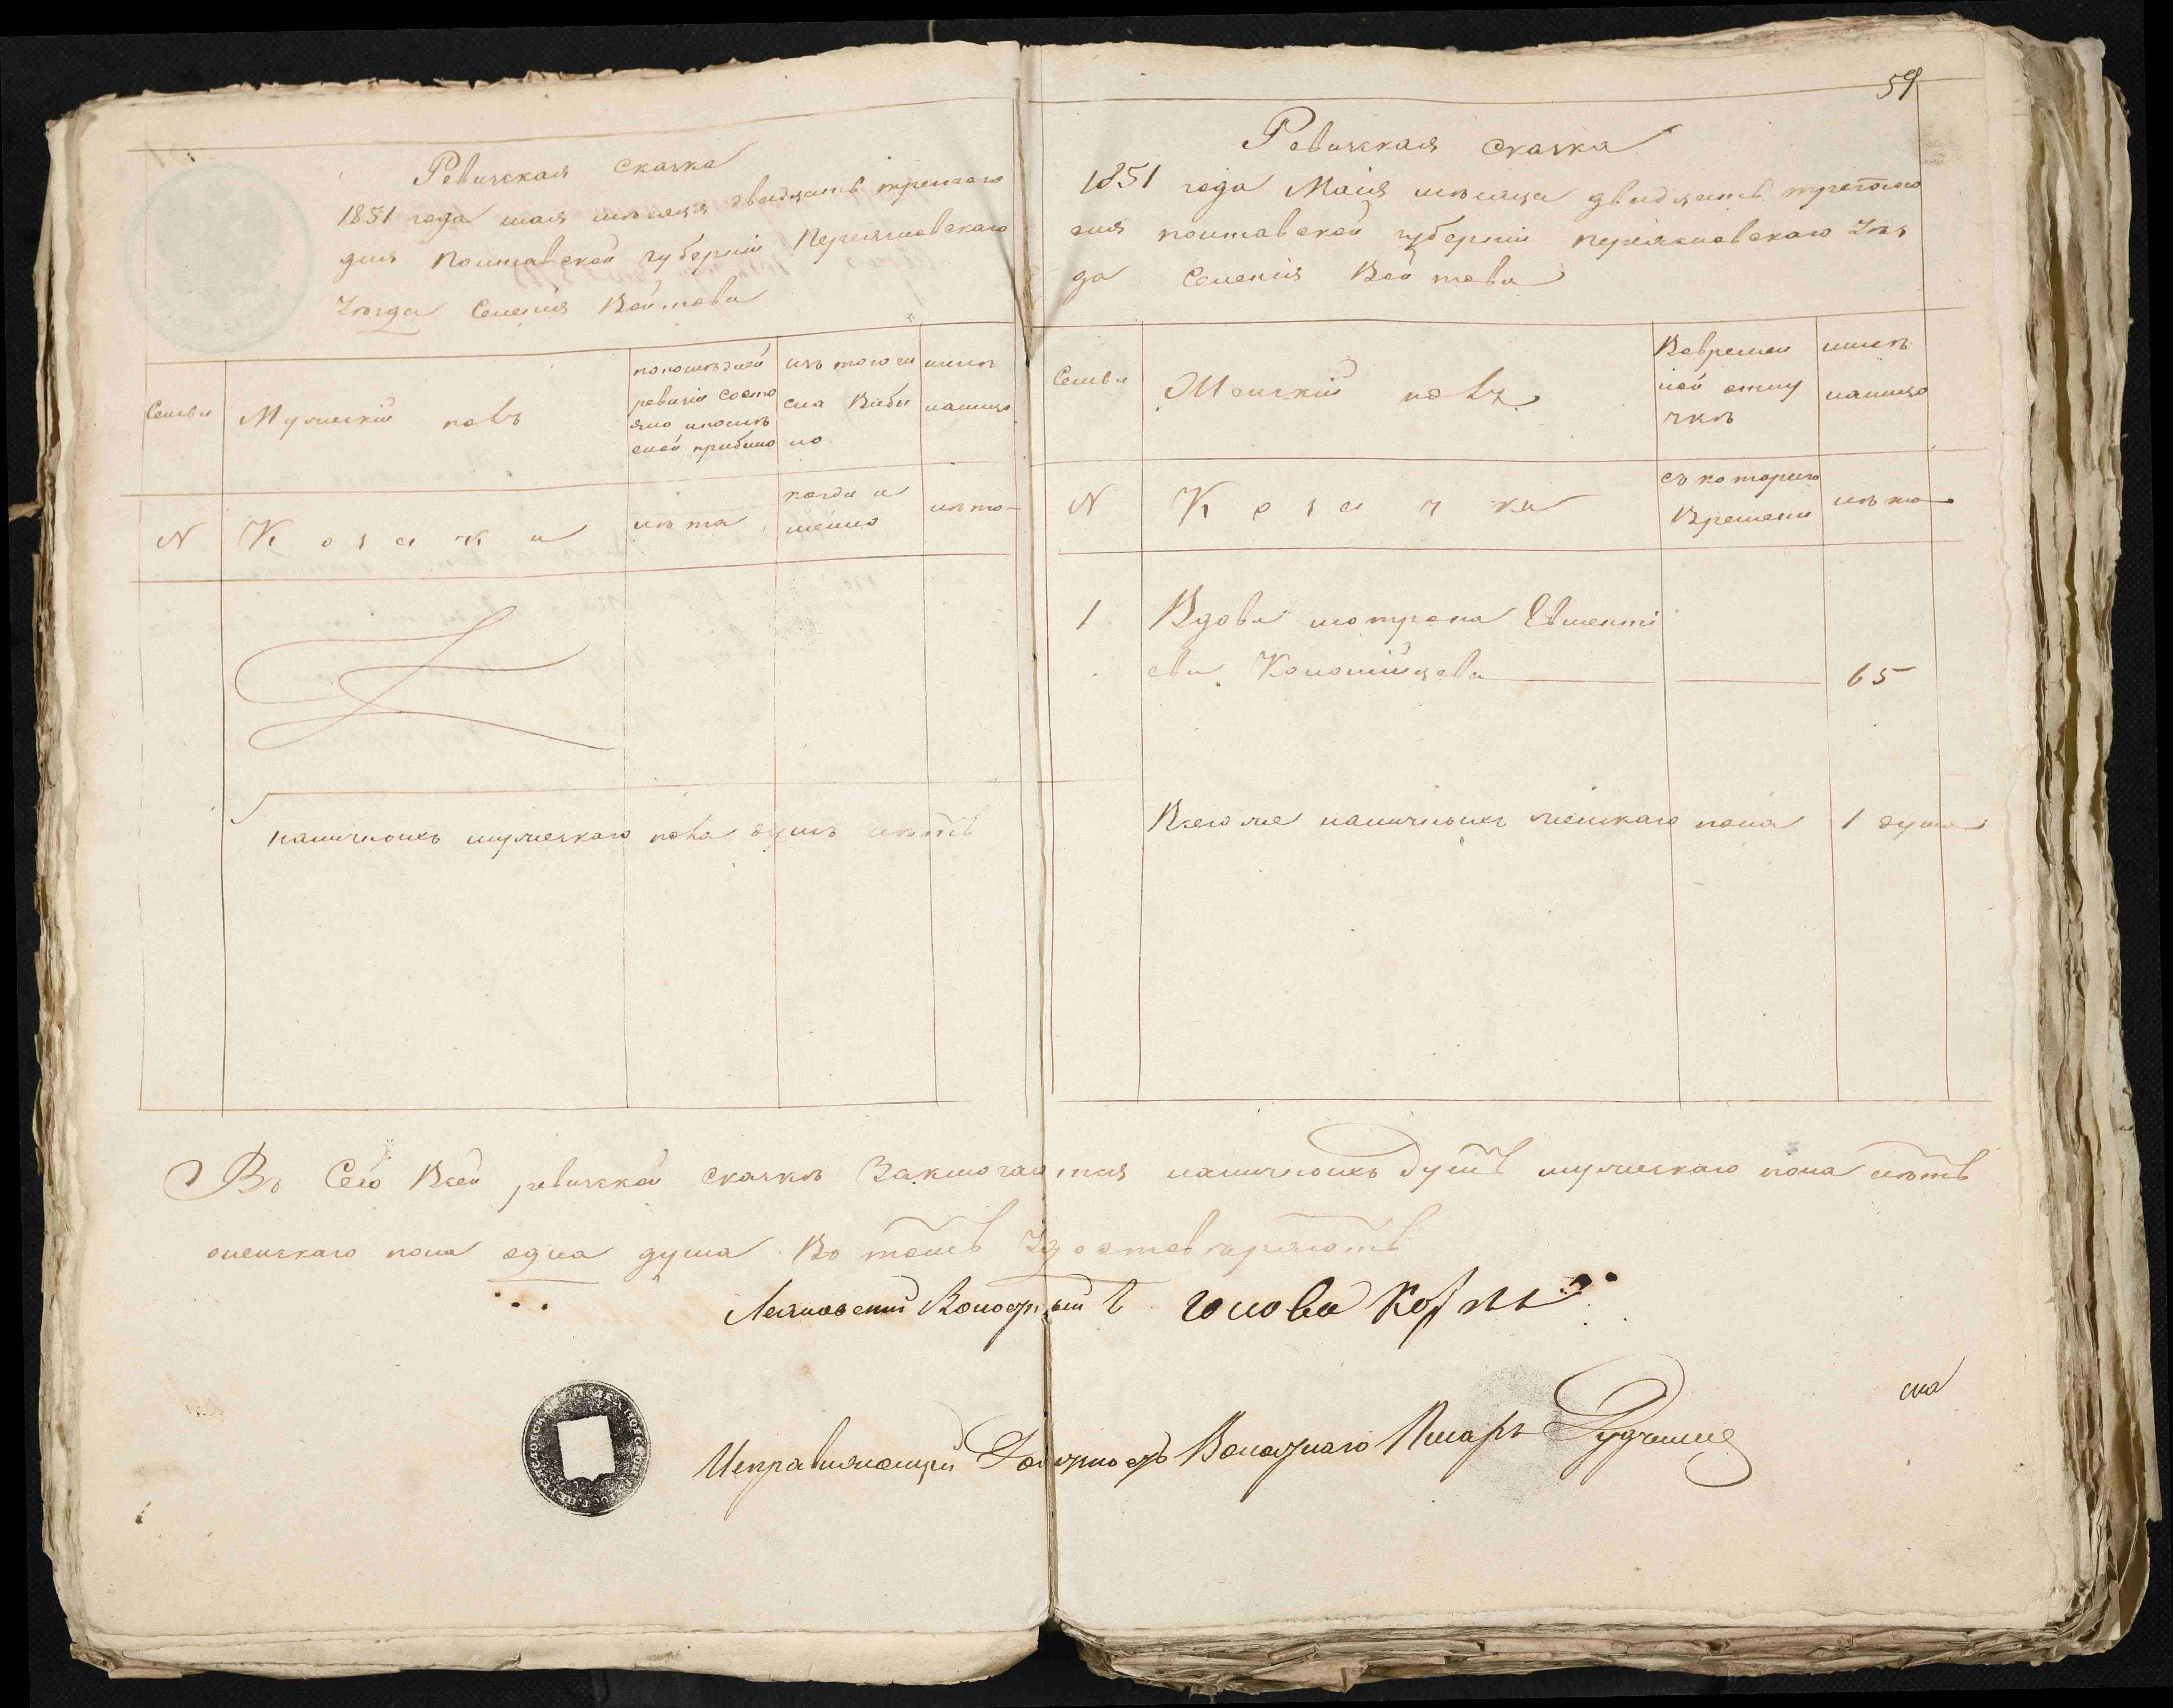 59
Ревизская сказка
1851 года мая месяца двадцать третого
дня полтавской губернии Переясловскаго
Уезда Селения Войтова
Семьи
Мужеский полъ
попоследней
ревизии состо
яло ипосле
оной прибыло
изъ того чи
сла Выбы
ло
ныне
налицо
N
К о з а к и
лета
когда и
менно
лета
наличныхъ мужескаго пола душъ нетъ
Ревизская сказка
1851 года Маия месяца двадцать третого
дня полтавской губернии переясловскаго Уез
да Селения Войтова
Семьи
Женский полъ
Вовремен
ной отлу
чке
ныне
налицо
N
К о з а ч ки
съ котораго
Времени
лета
1
Вдова мотрона Евменти
ева Коломийцева
65
Всего же наличныхъ женскаго пола 1 душа
Въ Сей Всей ревизской сказке Заключается наличныхъ душъ мужескаго пола нетъ
женскаго пола одна душа Во томъ Удостоверяютъ
Волостный голова
Исправляющий Должность Волостнаго Писаря